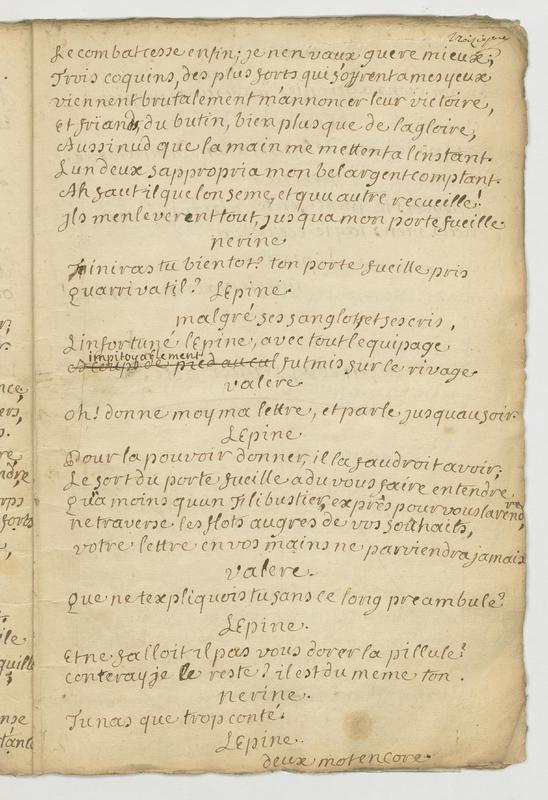 Troisieme
Le combat cesse enfin; je nen vaux guere mieux;
Trois coquins, des plus forts qui soffrent a mes yeux
viennent brutalement m'annoncer leur victoire,
Et friands, du butin, bien plus que de la gloire,
Aussi nud que la main me mettent a linstant.
Lun deux sappropria mon bel argent comptant.
Ah faut il que lon seme, et quu autre recueille!
Jls menleverent tout, jusqua mon porte fueille
nerine
finiras tu bientot? ton porte fueille pris
Quarriva til? LEpine.
malgré ses sanglots, et ses cris,
Linfortuné lepine, avec tout lequipage
impitoyablement
a coups de pied au cul fut mis sur le rivage
valere
oh! donne moy ma lettre, et parle jusquau soir.
LEpine
Pour la pouvoir donner, il la faudroit avoir;
Le sort du porte fueille a du vous faire entendre
Qu'a moins quun Flibustier, exprès pour vous la rendre,
ne traverse les flots au gres de vos souhaits,
votre lettre en vos mains ne parviendra jamais
valere.
Que ne texpliquois tu sans ce long preambule?
LEpine.
Et ne falloit il pas vous dorer la pillule?
conteray je le reste? il est du meme ton.
nerine.
Tu nas que trop conté.
LEpine.
deux mot encore.